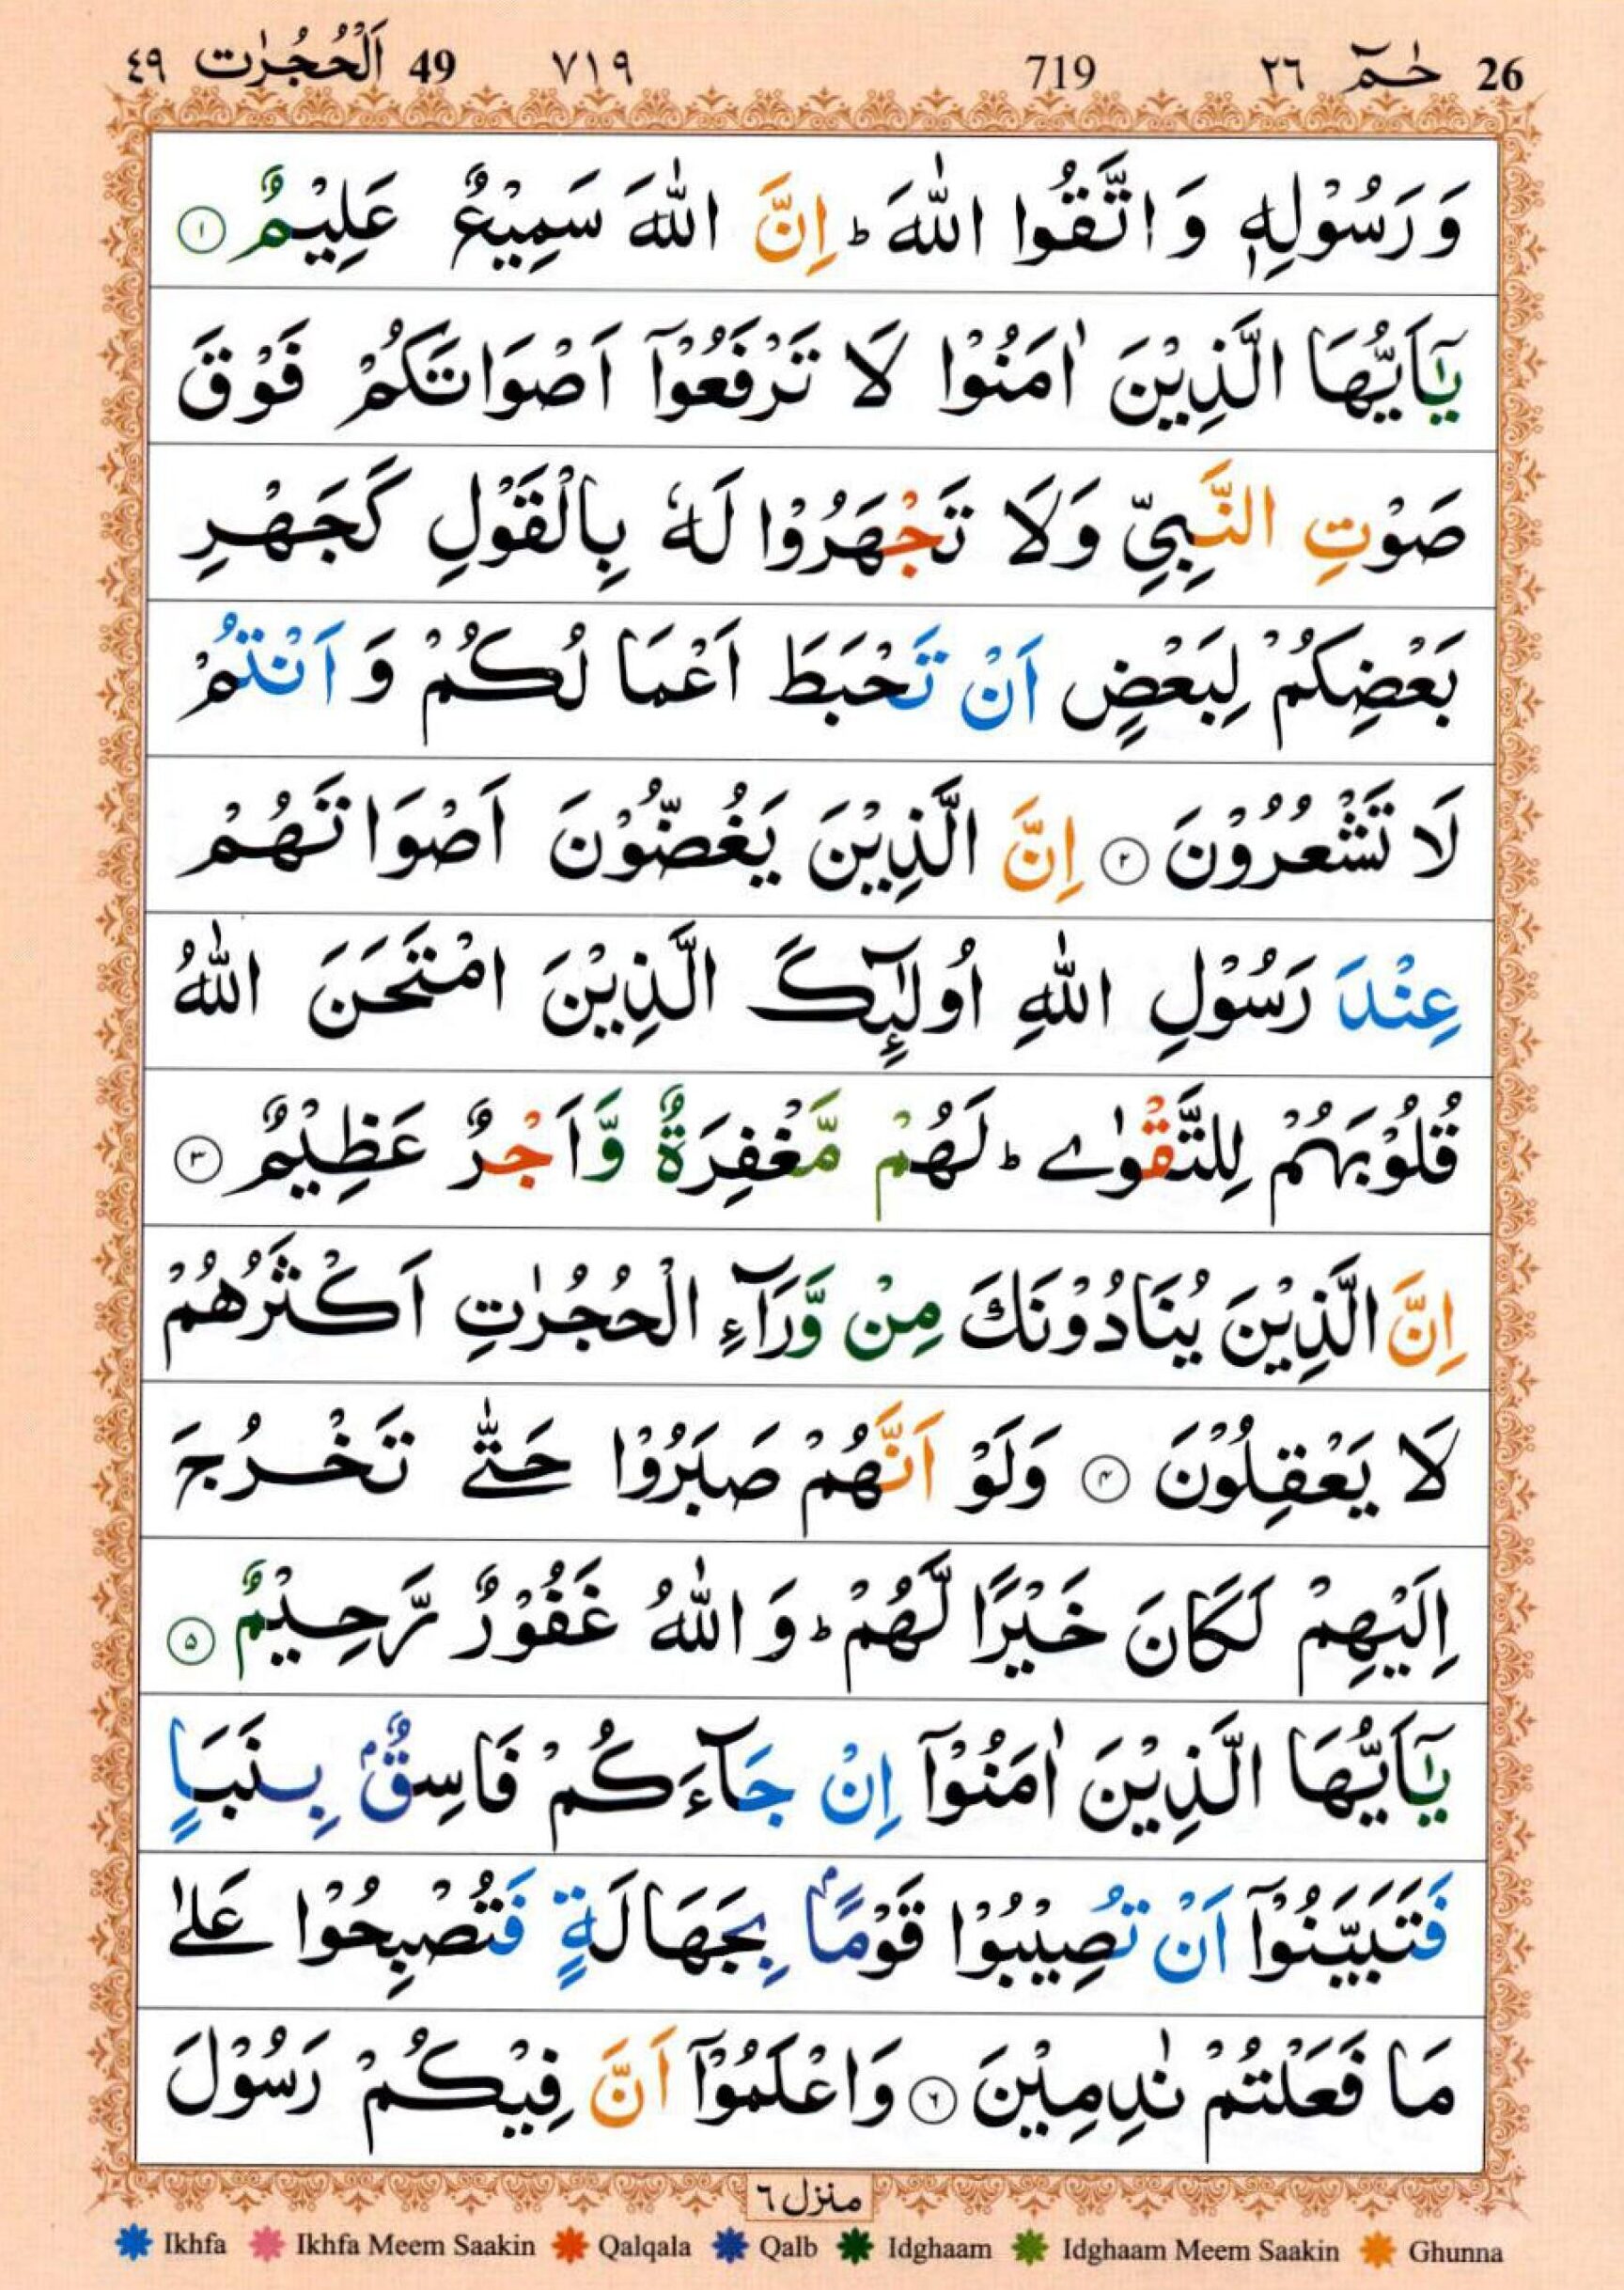 26 حٰمٓ ٢٦ 719 ٧١٩ 49 اَلْحُجُرٰت ٤٩
وَ رَسُوْلِهٖ وَ اتَّقُوا اللّٰهَ ؕ اِنَّ اللّٰهَ سَمِيْعٌ عَلِيْمٌ ۝١
يٰۤاَيُّهَا الَّذِيْنَ اٰمَنُوْا لَا تَرْفَعُوْۤا اَصْوَاتَكُمْ فَوْقَ
صَوْتِ النَّبِيِّ وَلَا تَجْهَرُوْا لَهٗ بِالْقَوْلِ كَجَهْرِ
بَعْضِكُمْ لِبَعْضٍ اَنْ تَحْبَطَ اَعْمَالُكُمْ وَ اَنْتُمْ
لَا تَشْعُرُوْنَ ۝٢ اِنَّ الَّذِيْنَ يَغُضُّوْنَ اَصْوَاتَهُمْ
عِنْدَ رَسُوْلِ اللّٰهِ اُولٰٓئِكَ الَّذِيْنَ امْتَحَنَ اللّٰهُ
قُلُوْبَهُمْ لِلتَّقْوٰے ؕ لَهُمْ مَّغْفِرَةٌ وَّاَجْرٌ عَظِيْمٌ ۝٣
اِنَّ الَّذِيْنَ يُنَادُوْنَكَ مِنْ وَّرَآءِ الْحُجُرٰتِ اَكْثَرُهُمْ
لَا يَعْقِلُوْنَ ۝٤ وَلَوْ اَنَّهُمْ صَبَرُوْا حَتّٰے تَخْرُجَ
اِلَيْهِمْ لَكَانَ خَيْرًا لَّهُمْ ؕ وَ اللّٰهُ غَفُوْرٌ رَّحِيْمٌ ۝٥
يٰۤاَيُّهَا الَّذِيْنَ اٰمَنُوْۤا اِنْ جَآءَكُمْ فَاسِقٌۢ بِنَبَاٍ
فَتَبَيَّنُوْۤا اَنْ تُصِيْبُوْا قَوْمًاۢ بِجَهَالَةٍ فَتُصْبِحُوْا عَلٰے
مَا فَعَلْتُمْ نٰدِمِيْنَ ۝٦ وَاعْلَمُوْۤا اَنَّ فِيْكُمْ رَسُوْلَ
منزل ٦
Ikhfa Ikhfa Meem Saakin Qalqala Qalb Idghaam Idghaam Meem Saakin Ghunna